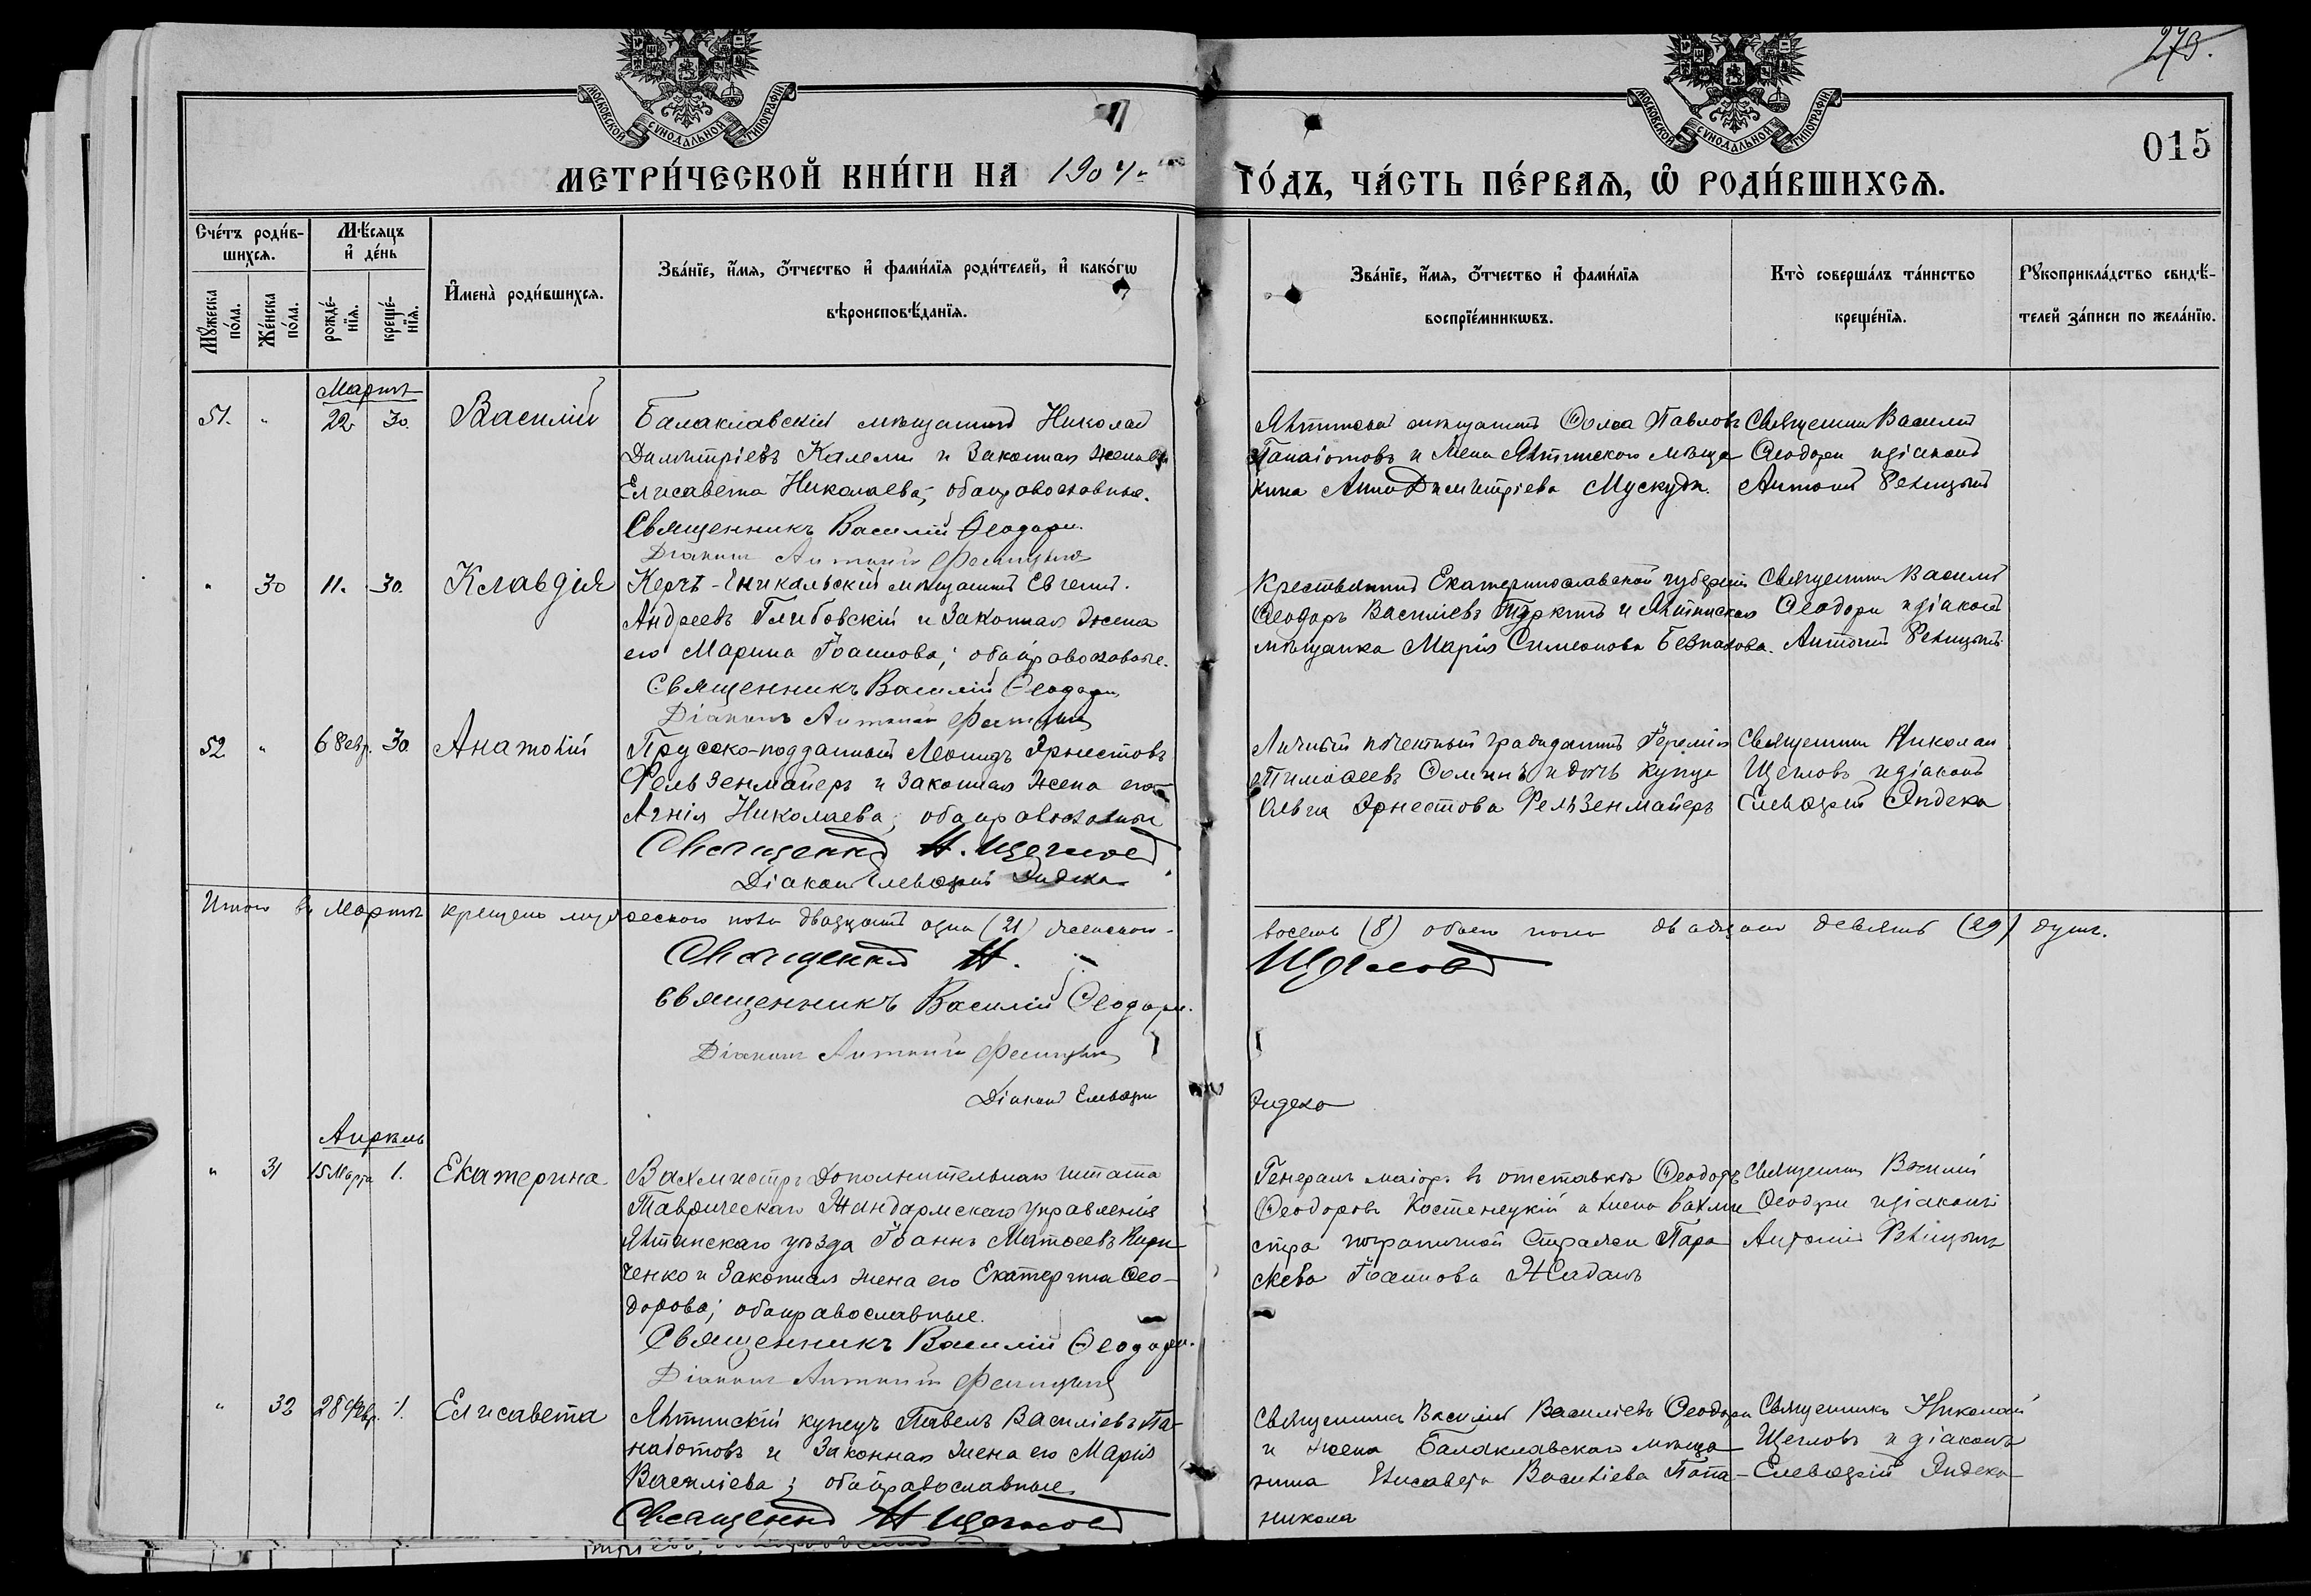 279.
015
МОСКОВСКОЙ СУНОДАЛЬНОЙ ТИПОГРАФІИ
МОСКОВСКОЙ СУНОДАЛЬНОЙ ТИПОГРАФІИ
МЕТРИ́ЧЕСКОЙ КНИ́ГИ НА 1904 ГО́ДЪ, ЧА́СТЬ ПЕ́РВАѦ, Ѡ҆ РОДИ́ВШИХСѦ.
Сче́тъ роди́в-
шихсѧ.
Мѣ́сѧцъ
и҆ де́нь
Мꙋ́жеска
по́ла.
Же́нска
по́ла.
рожде́-
нїѧ.
креще́-
нїѧ.
И҆мена̀ роди́вшихсѧ.
Зва́нїе, и҆́мѧ, ѻ҆́тчество и҆ фами́лїѧ роди́телей, и҆ како́гѡ
вѣроисповѣ́данїѧ.
Зва́нїе, и҆́мѧ, ѻ҆́тчество и҆ фами́лїѧ
воспрїе́мникѡвъ.
Кто̀ соверша́лъ та́инство
креще́нїѧ.
Рꙋкоприкла́дство свидѣ́-
телей за́писи по жела́нїю.
Мартъ
51. " 22 30. Василій
Балаклавскій мѣщанинъ Николай
Димитріевъ Калели и законная жена его
Елисавета Николаева; оба православные.
Священникъ Василій Ѳеодори.
Діаконъ Антоній Фелицынъ
Ялтинскій мѣщанинъ Ѳома Павловъ
Панаіотовъ и жена Ялтинскаго мѣща
нина Анна Димитріева Мускуди.
Священникъ Василій
Ѳеодори и діаконъ
Антоній Фелицынъ
" 30 11. 30. Клавдія
Керчь-Еникальскій мѣщанинъ Евгеній
Андреевъ Глибовскій и законная жена
его Марина Іоаннова; оба православные.
Священникъ Василій Ѳеодори
Діаконъ Антоній Фелицынъ
Крестьянинъ Екатеринославской губерніи
Ѳеодоръ Василіевъ и Ялтинская
мѣщанка Марія Симеонова Безпалова.
Священникъ Василій
Ѳеодори и діаконъ
Антоній Фелицынъ
52 " 6 Февр. 30 Анатолій
Прусско-подданный Леонидъ Эрнестовъ
Фельзенмайеръ и законная жена его
Агнія Николаева; оба православные
Священникъ Н. Щегловъ
Діаконъ Елевѳерій Эндека
Личный почетный гражданинъ Іеремія
Тимоѳеевъ Ѳоминъ и дочь купца
Ольга Эрнестова Фельзенмайеръ
Священникъ Николай
Щегловъ и діаконъ
Елевѳерій Эндека
Итого въ Мартѣ крещено мужескаго пола двадцать одна (21) женскаго
восемь (8) обоего пола двадцать девять (29) душъ.
Священникъ Н. Щегловъ
Священникъ Василій Ѳеодори.
Діаконъ Антоній Фелицынъ
Діаконъ Елевѳерій Эндека
Апрѣль
" 31 15 Марта 1. Екатерина
Вахмистръ дополнительнаго штата
Таврическаго Жандармскаго управленія
Ялтинскаго уѣзда Іоаннъ Матѳеевъ Кири
ченко и законная жена его Екатерина Ѳео-
дорова; оба православные.
Священникъ Василій Ѳеодори.
Діаконъ Антоній Фелицынъ
Генералъ маіоръ въ отставкѣ Ѳеодоръ
Ѳеодоровъ Костенецкій и жена вахми
стра пограничной стражи Пара
скева Іоаннова Жаданъ
Священникъ Василій
Ѳеодори и діаконъ
Антоній Фелицынъ
" 32 28 Февр. 1. Елисавета
Ялтинскій купецъ Павелъ Василіевъ Па-
наіотовъ и законная жена его Марія
Василіева; оба православные
Священникъ Н. Щегловъ
Священникъ Василій Василіевъ Ѳеодори
и жена Балаклавскаго мѣща
нина Елисавета Василіева Папа-
никола
Священникъ Николай
Щегловъ и діаконъ
Елевѳерій Эндека